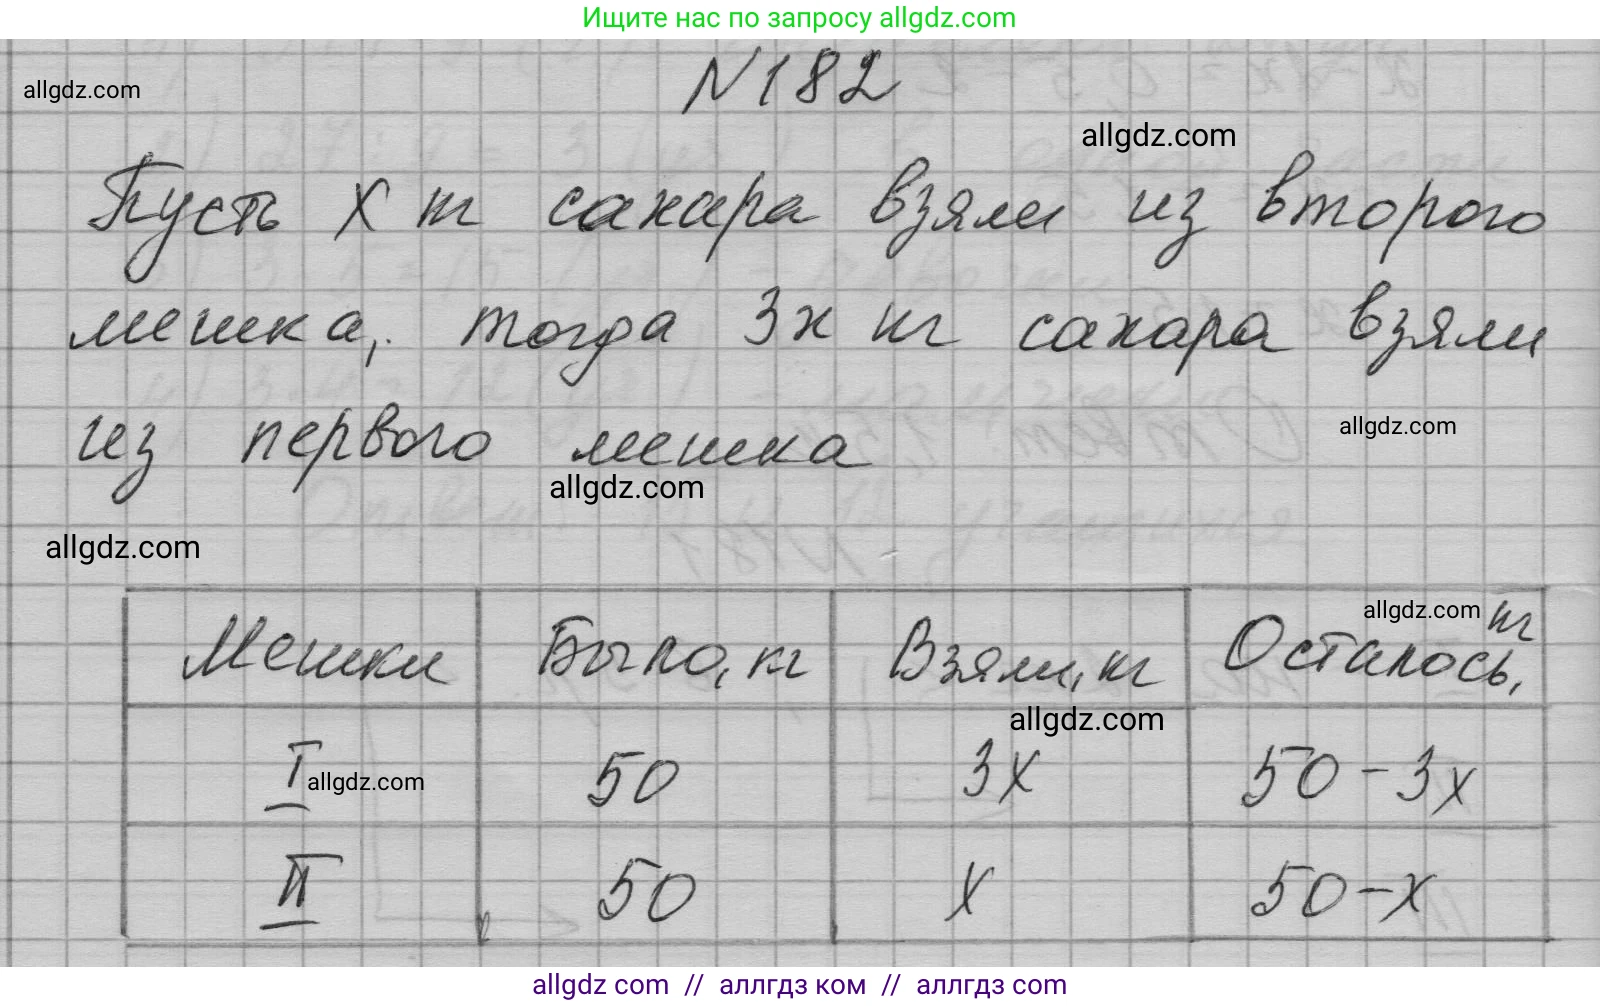 Ищите нас по запросу allgdz.com
N182
allgdz.com
allgdz.com
Пусть x кг сахара взяли из второго
мешка, тогда 3x кг сахара взяли
из первого мешка
allgdz.com
allgdz.com
allgdz.com
Мешки Было, кг Взяли, кг Осталось, кг
allgdz.com
allgdz.com
I 50 3x 50-3x
allgdz.com
II 50 x 50-x
allgdz.com // аллгдз ком // аллгдз com